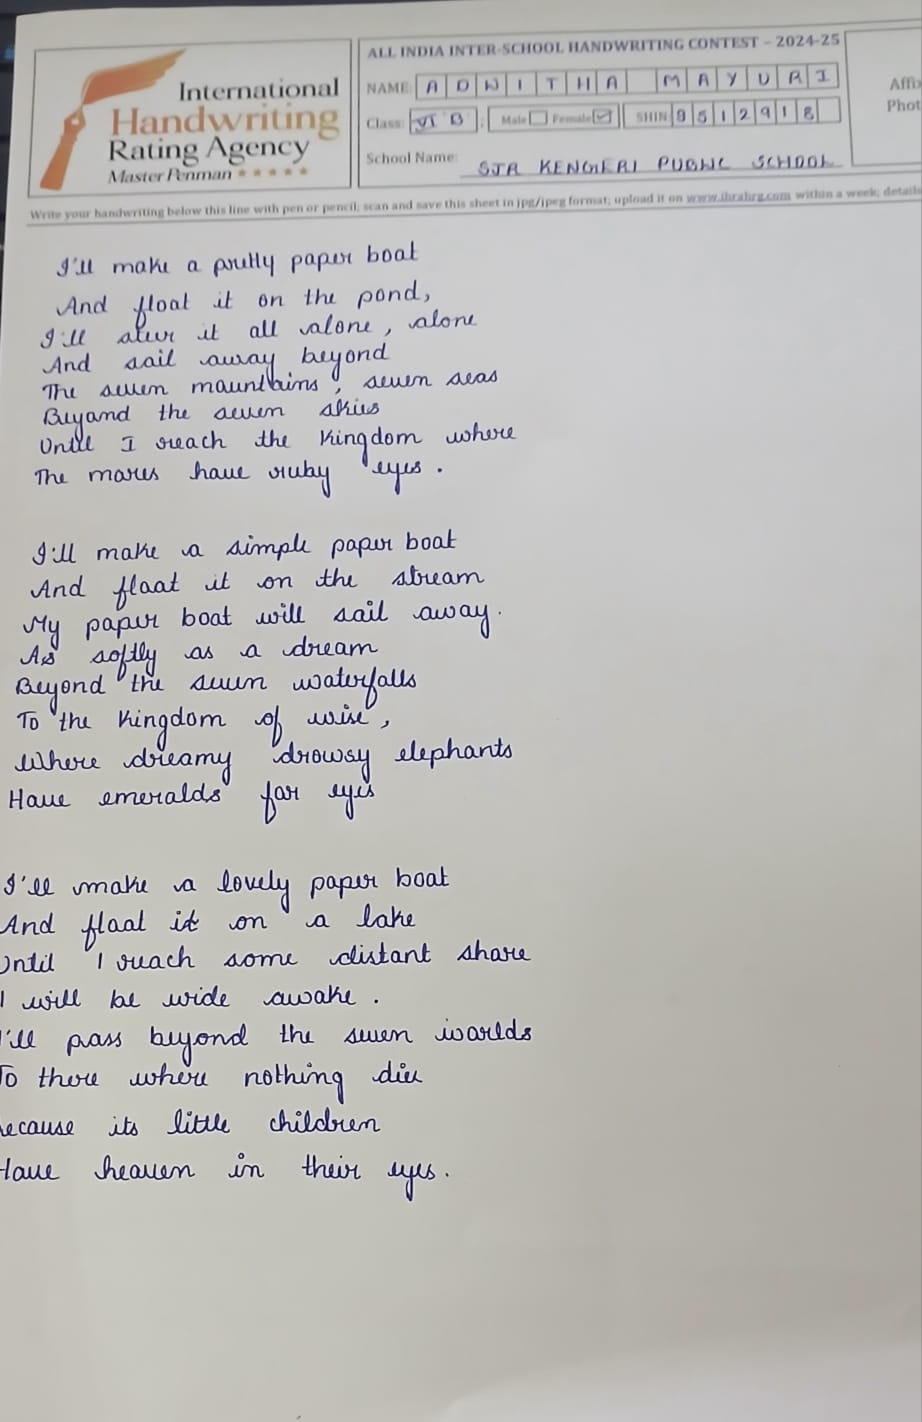 ALL INDIA INTER-SCHOOL HANDWRITING CONTEST – 2024-25
International
Handwriting
Rating Agency
Master Penman ★★★★★
NAME: ADWITHA MAYURI
Affix
Phot
Class: VI B Male Female ✓ SHIN: 9512918
School Name: SJR KENGERI PUBLIC SCHOOL
Write your handwriting below this line with pen or pencil; scan and save this sheet in jpg/jpeg format; upload it on www.ihrahrg.com within a week; details
I'll make a pretty paper boat
And float it on the pond,
I'll steer it all alone, alone
And sail away beyond
The seven mountains, seven seas
Beyond the seven skies
Until I reach the kingdom where
The mares have ruby eyes.
I'll make a simple paper boat
And float it on the stream
My paper boat will sail away.
As softly as a dream
Beyond the seven waterfalls
To the kingdom of wise,
Where dreamy drowsy elephants
Have emeralds for eyes
I'll make a lovely paper boat
And float it on a lake
Until I reach some distant shore
I will be wide awake.
I'll pass beyond the seven worlds
To there where nothing dies
ecause its little children
Have heaven in their eyes.